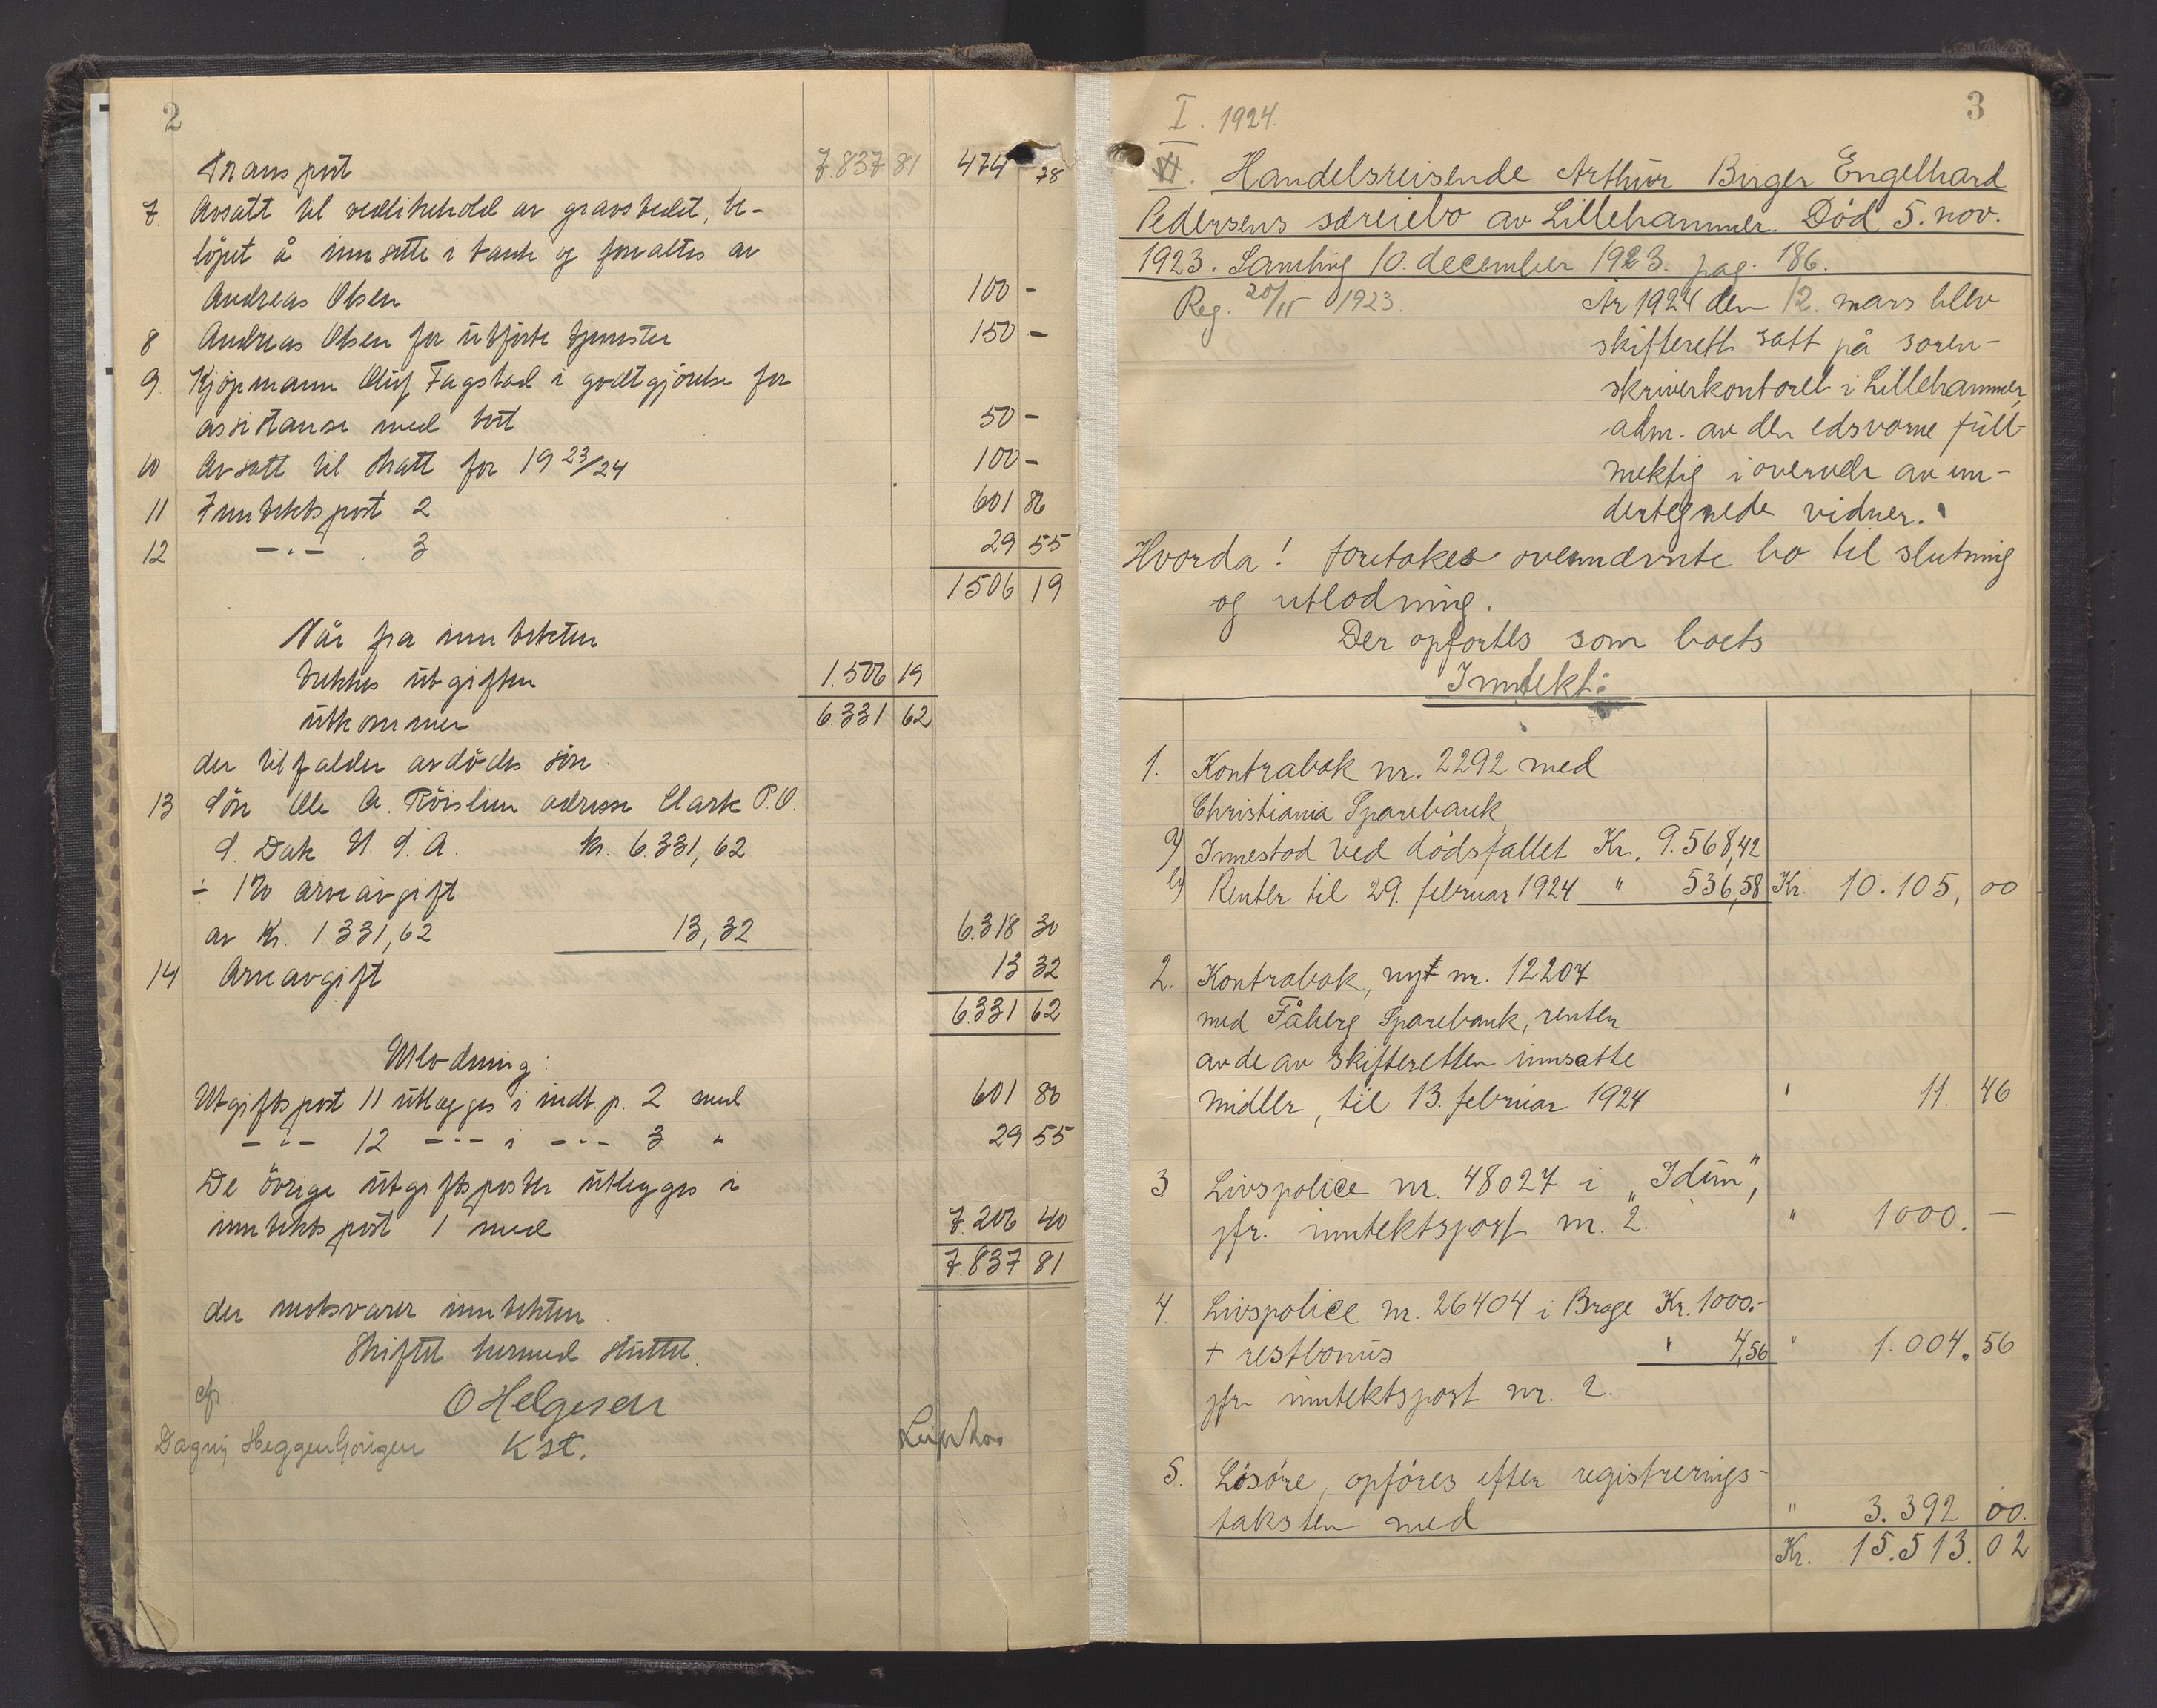 2
Transport 7.837 81 474 78
7. Avsatt til vedlikehold av gravstedet, be-
löpet å innsette i bank og forvaltes av
Andreas Olsen 100 -
8 Andreas Olsen for utförte tjenester 150 -
9. Kjöpmann Oluf Fagstad i godtgjörelse for
assistanse med bort 50 -
10 Avsatt til skatt for 1923/24 100 -
11 Inntektspost 2 601 86
12 -"- 3 29 55
1.506 19
Når fra inntekten
trekkes utgiften 1.506 19
utkommer 6.331 62
der tilfalder avdödes sön.
13 Sön Ole A. Röislien adresse Clark P.O.
S. Dak. U.S.A. kr. 6.331,62
÷ 1% arveavgift
av Kr. 1.331,62 13,32 6.318 30
14 Arveavgift 13 32
6.331 62
Utlodning:
Utgiftspost 11 utlægges i indt. p. 2 med 601 86
-"- 12 -"- i -"- 3 " 29 55
De övrige utgiftsposter utlegges i
inntektspost 1 med 7.206 40
7.837 81
der motsvarer inntekten.
Skiftet hermed sluttet.
O Helgesen
Kst.
Dagny Heggenhougen
3
I. 1924.
VI. Handelsreisende Arthur Birger Engelhard
Pedersens særeiebo av Lillehammer. Död 5. nov.
1923. Samling 10. december 1923. pag. 186.
Reg. 20/11 1923.
År 1924 den 12. mars blev
skifterett satt på soren-
skriverkontoret i Lillehammer,
adm. av den edsvorne full-
mektig i overvær av un-
dertegnede vidner.
Hvorda! foretokes ovennævnte bo til slutning
og utlodning.
Der opførtes som boets
Inntekt:
1. Kontrabok nr. 2292 med
Christiania Sparebank
a) Innestod ved dødsfallet Kr. 9.568,42
b) Renter til 29. februar 1924 " 536,58 Kr. 10.105, 00
2. Kontrabok, nyt nr. 12207
med Fåberg Sparebank, renter
av de av skifteretten innsatte
midler, til 13. februar 1924 " 11. 46
3. Livspolice nr. 48027 i „Idun",
jfr. inntektspost nr. 2. " 1000. —
4. Livspolice nr. 26404 i Brage Kr. 1000.-
+ restbonus " 4,56 " 1.004. 56
jfr. inntektspost nr. 2.
5. Lösöre, opföres efter registrerings-
taksten med " 3.392 00.
Kr. 15.513. 02